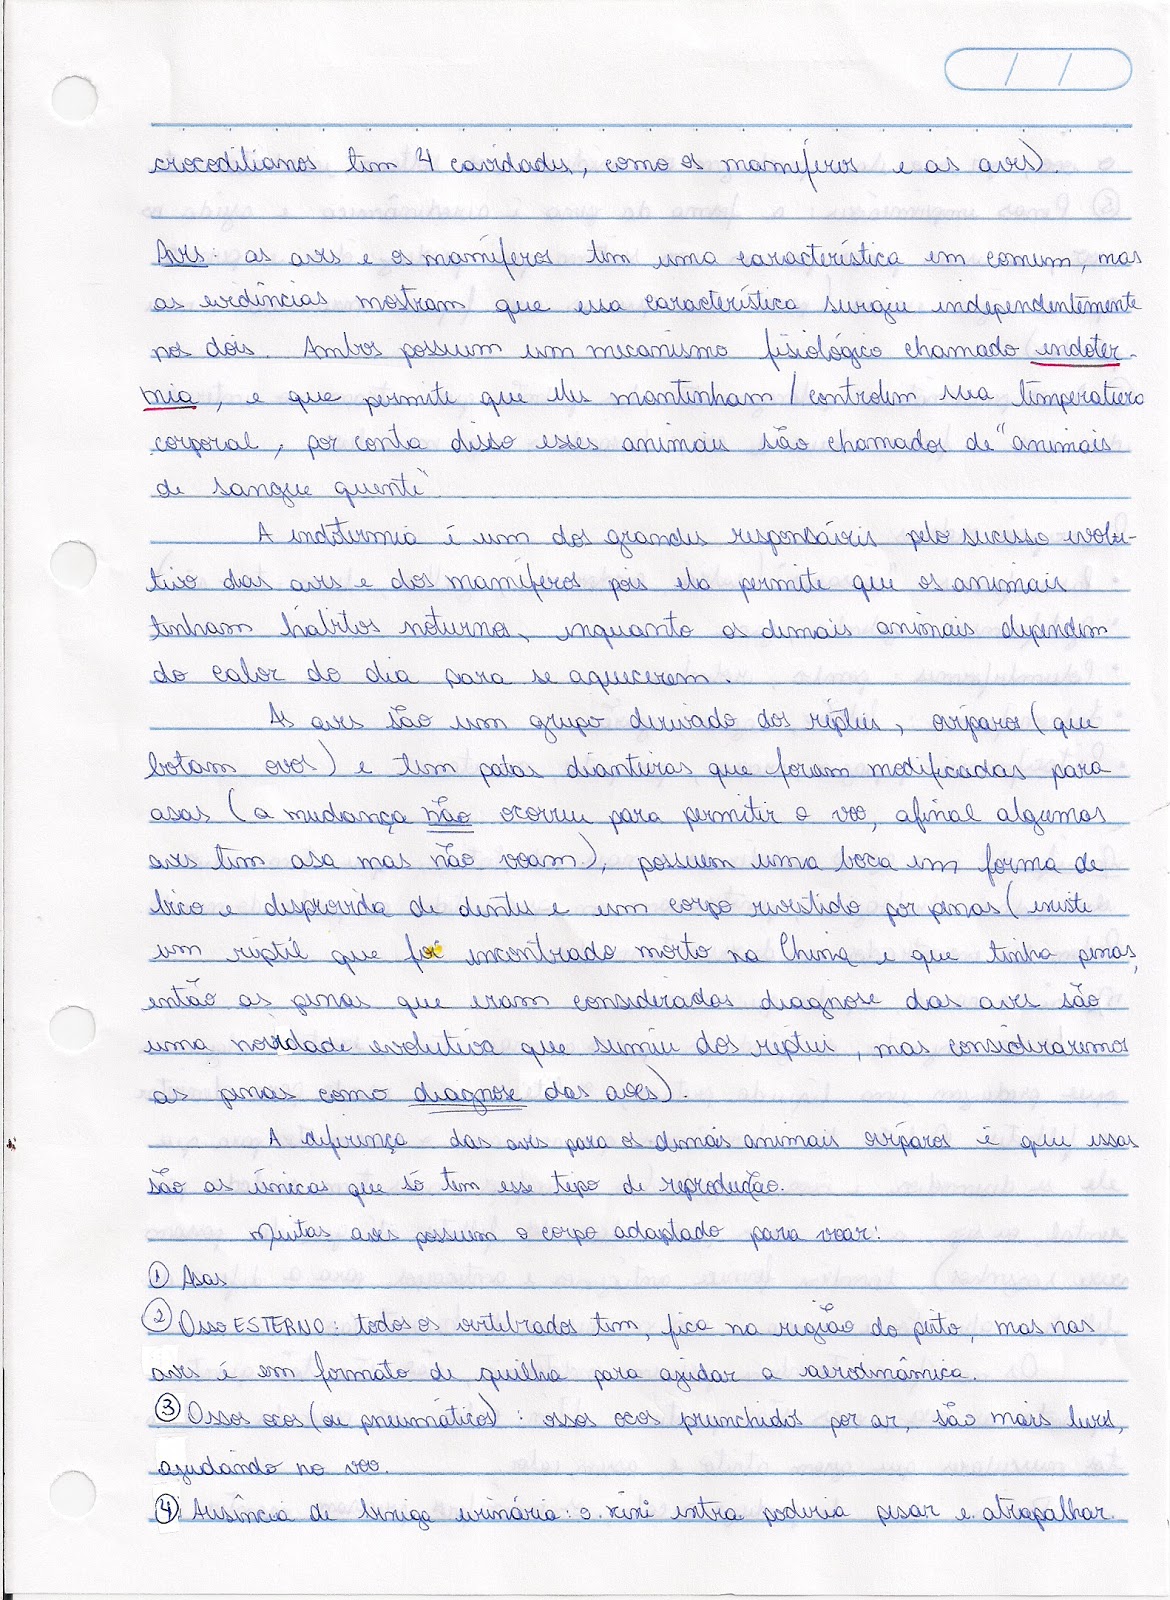 crocodilianos tem 4 cavidades, como os mamíferos e as aves).
Aves: as aves e os mamíferos tem uma característica em comum, mas
as evidências mostram que essa característica surgiu independentemente
nos dois. Ambos possuem um mecanismo fisiológico chamado endoter-
mia, e que permite que eles mantinham/controlem sua temperatura
corporal, por conta disso esses animais são chamados de "animais
de sangue quente"
A endotermia é um dos grandes responsáveis pelo sucesso evolu-
tivo das aves e dos mamíferos pois ela permite que os animais
tenham hábitos noturnos, enquanto os demais animais dependem
do calor do dia para se aquecerem.
As aves são um grupo derivado dos répteis, ovíparos (que
botam ovos) e tem patas dianteiras que foram modificadas para
asas (a mudança não ocorreu para permitir o voo, afinal algumas
aves tem asa mas não voam), possuem uma boca em forma de
bico e desprovida de dentes e um corpo revestido por penas (existe
um réptil que foi encontrado morto na China e que tinha penas,
então as penas que eram consideradas diagnose das aves são
uma novidade evolutiva que sumiu dos repteis, mas consideraremos
as penas como diagnose das aves).
A diferença das aves para os demais animais ovíparos é que essas
são as únicas que só tem esse tipo de reprodução.
Muitas aves possuem o corpo adaptado para voar:
① Asas
② Osso ESTERNO: todos os vertebrados tem, fica na região do peito, mas nas
aves é em formato de quilha para ajudar a aerodinâmica.
③ Ossos ocos (ou pneumáticos): ossos ocos preenchidos por ar, são mais leves,
ajudando no voo.
④ Ausência de bexiga urinária: o xixi extra poderia pesar e atrapalhar.